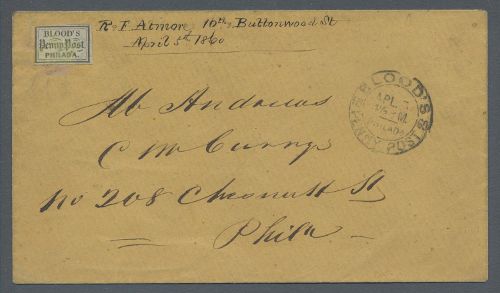 BLOOD'S
Penny Post
PHILAD'A.
R. F. Atmore, 10th, Buttonwood St
April 5th 1860
BLOOD'S
APL
PHILADA
PENNY POST
C M
No 208 Chesnutt St
Phila